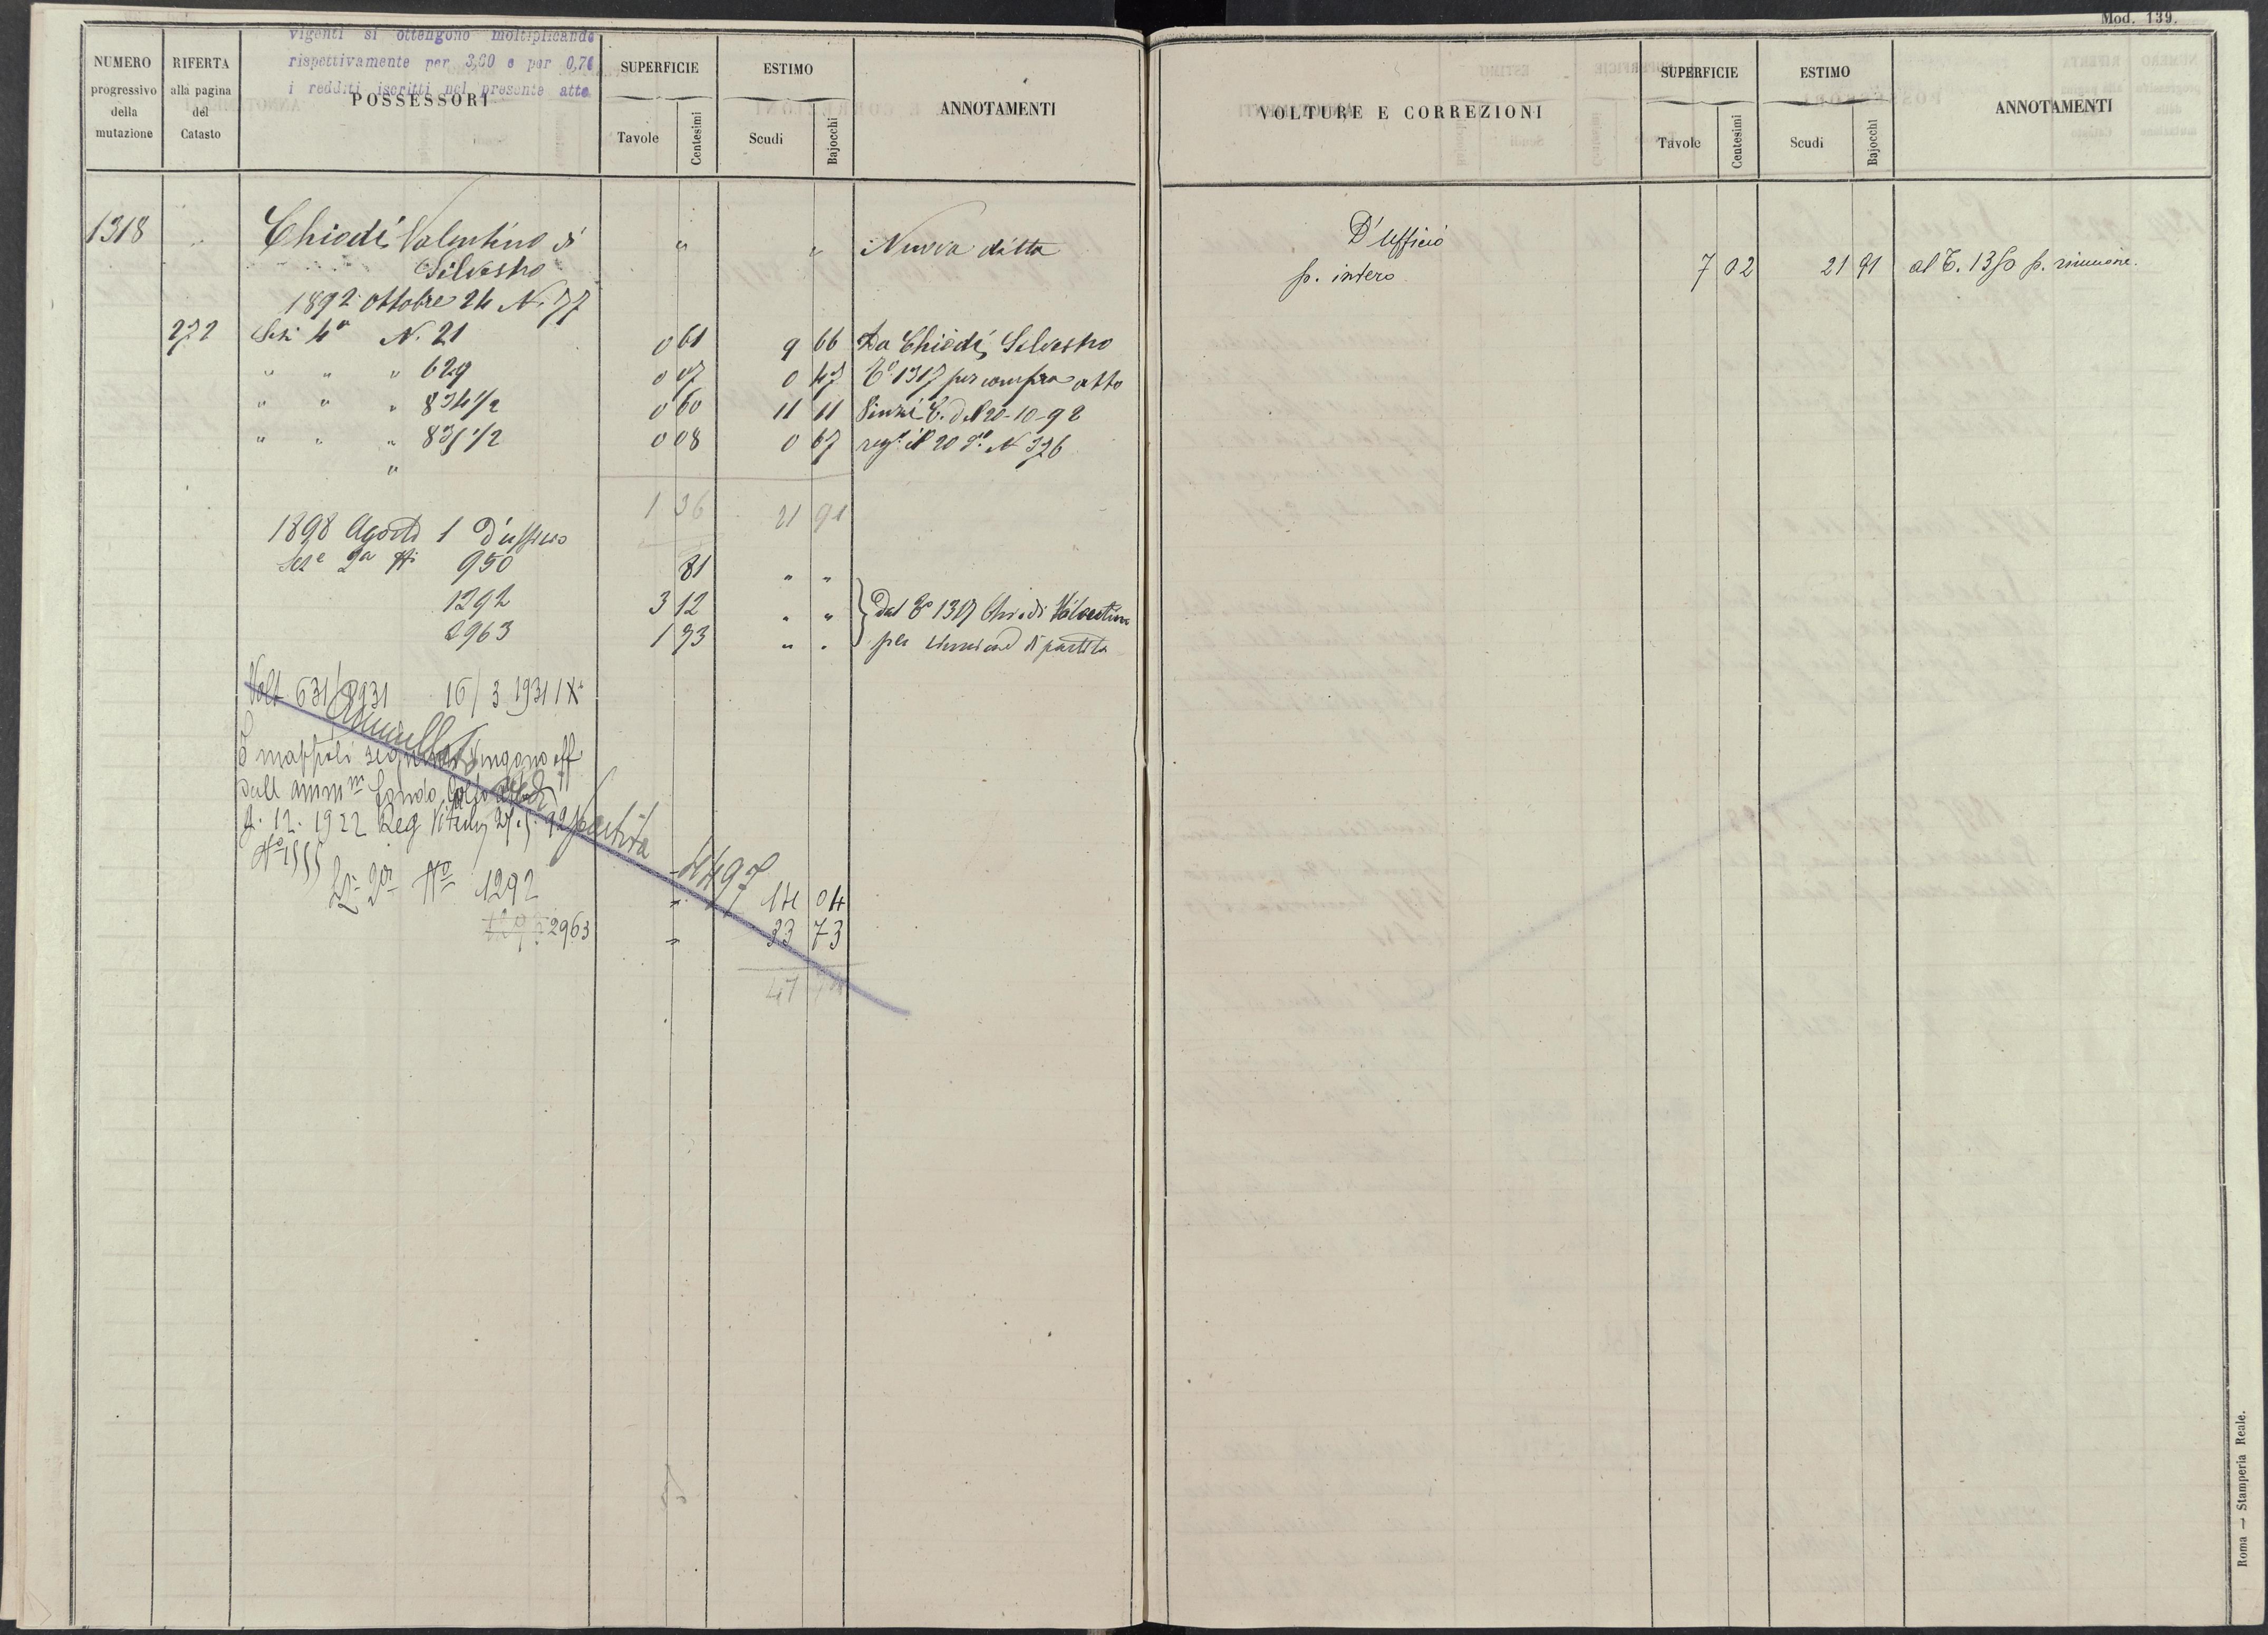 Mod. 139.
vigenti si ottengono moltiplicando
rispettivamente per 3,60 e per 0,76
i redditi iscritti nel presente atto
NUMERO progressivo della mutazione
RIFERTA alla pagina del Catasto
POSSESSORI
SUPERFICIE
Tavole Centesimi
ESTIMO
Scudi Bajocchi
ANNOTAMENTI
1318 Chiodi Valentino di " " Nuova ditta
Silvestro
1892 ottobre 24 N. 77
272 Sez. 4a N. 21 0 61 9 66 Da Chiodi Silvestro
" " " 629 0 07 0 47 1317 per compra atto
" " " 834 1/2 0 60 11 11 del 20-10-92
" " " 835 1/2 0 08 0 67 reg. il 20 do. N 326
"
1 36 21 91
1898 Agosto 1 D'ufficio
Sez. 2a 950 81 " "
1292 3 12 " " Dal 1317 Chiodi Valentino
2963 1 73 " " per riunione di partita
Volt 631/1931 16/3 1931 IX
Annullata
mappali
dall amm fondo
4. 12. 1922 Reg
partita
4497
2a No 1292 " 14 04
2963 " 33 73
47
VOLTURE E CORREZIONI
SUPERFICIE
Tavole Centesimi
ESTIMO
Scudi Bajocchi
ANNOTAMENTI
D'Ufficio
p. intero 7 02 21 91 al T. 1350 p. riunione.
Roma — Stamperia Reale.